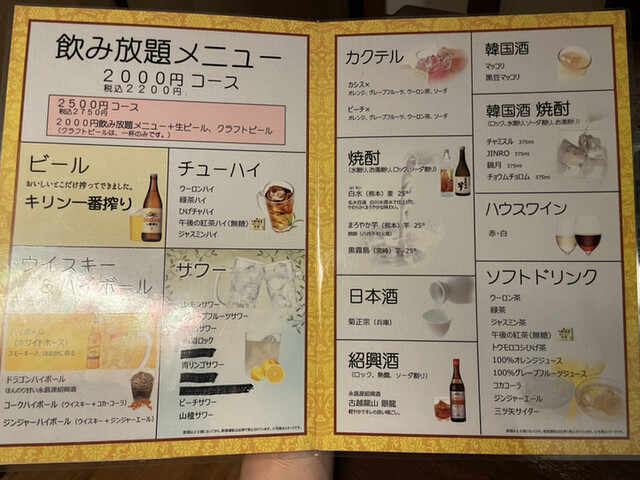 飲み放題メニュー
2000円コース
税込2200円
2500円コース
税込2750円
2000円飲み放題メニュー+生ビール、クラフトビール
(クラフトビールは、一杯のみです。)
ビール
おいしいとこだけ搾ってできました。
キリン一番搾り
チューハイ
ウーロンハイ
緑茶ハイ
ひげチャハイ
午後の紅茶ハイ(無糖)
ジャスミンハイ
ウイスキー
&ハイボール
ハイボール
(ホワイトホース)
スモーキーさ、ほのかに香る
ドラゴンハイボール
ほんのり甘い永昌源紹興酒
コークハイボール(ウイスキー+コカ・コーラ)
ジンジャーハイボール(ウイスキー+ジンジャーエール)
サワー
レモンサワー
グレープフルーツサワー
サワー
ロック
青リンゴサワー
ピーチサワー
山楂サワー
カクテル
カシス×
オレンジ、グレープフルーツ、ウーロン茶、ソーダ
ピーチ×
オレンジ、グレープフルーツ、ウーロン茶、ソーダ
焼酎
(水割り、お湯割り、ロック、ソーダ割り)
白水(熊本)麦 25°
やわらかくまろやかな味わい。
まろやか芋(熊本)芋 25°
黒霧島(宮崎)芋 25°
日本酒
菊正宗(兵庫)
紹興酒
(ロック、熱燗、ソーダ割り)
永昌源紹興酒
古越龍山 銀龍
軽やかでキレの良い喉ごし。
韓国酒
マッコリ
黒豆マッコリ
韓国酒 焼酎
(ロック、水割り、ソーダ割り、お湯割り)
チャミスル 375ml
JINRO 375ml
鏡月 375ml
チョウムチョロム 375ml
ハウスワイン
赤・白
ソフトドリンク
ウーロン茶
緑茶
ジャスミン茶
午後の紅茶(無糖)
トウモロコシひげ茶
100%オレンジジュース
100%グレープフルーツジュース
コカコーラ
ジンジャーエール
三ツ矢サイダー